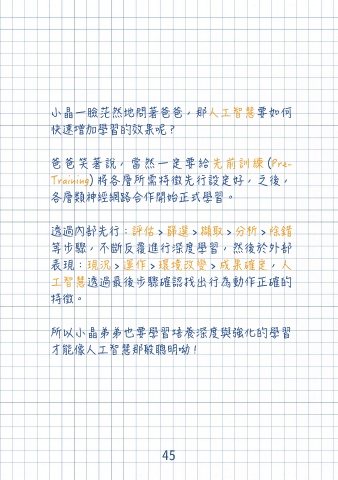 小晶一臉茫然地問著爸爸，那人工智慧要如何
快速增加學習的效果呢？
爸爸笑著說，當然一定要給先前訓練(Pre-
Training)將各層所需特徵先行設定好，之後，
各層類神經網路合作開始正式學習。
透過內部先行：評估>篩選>擷取>分析>除錯
等步驟，不斷反覆進行深度學習，然後於外部
表現：現況>運作>環境改變>成果確定，人
工智慧透過最後步驟確認找出行為動作正確的
特徵。
所以小晶弟弟也要學習培養深度與強化的學習
才能像人工智慧那般聰明呦！
45